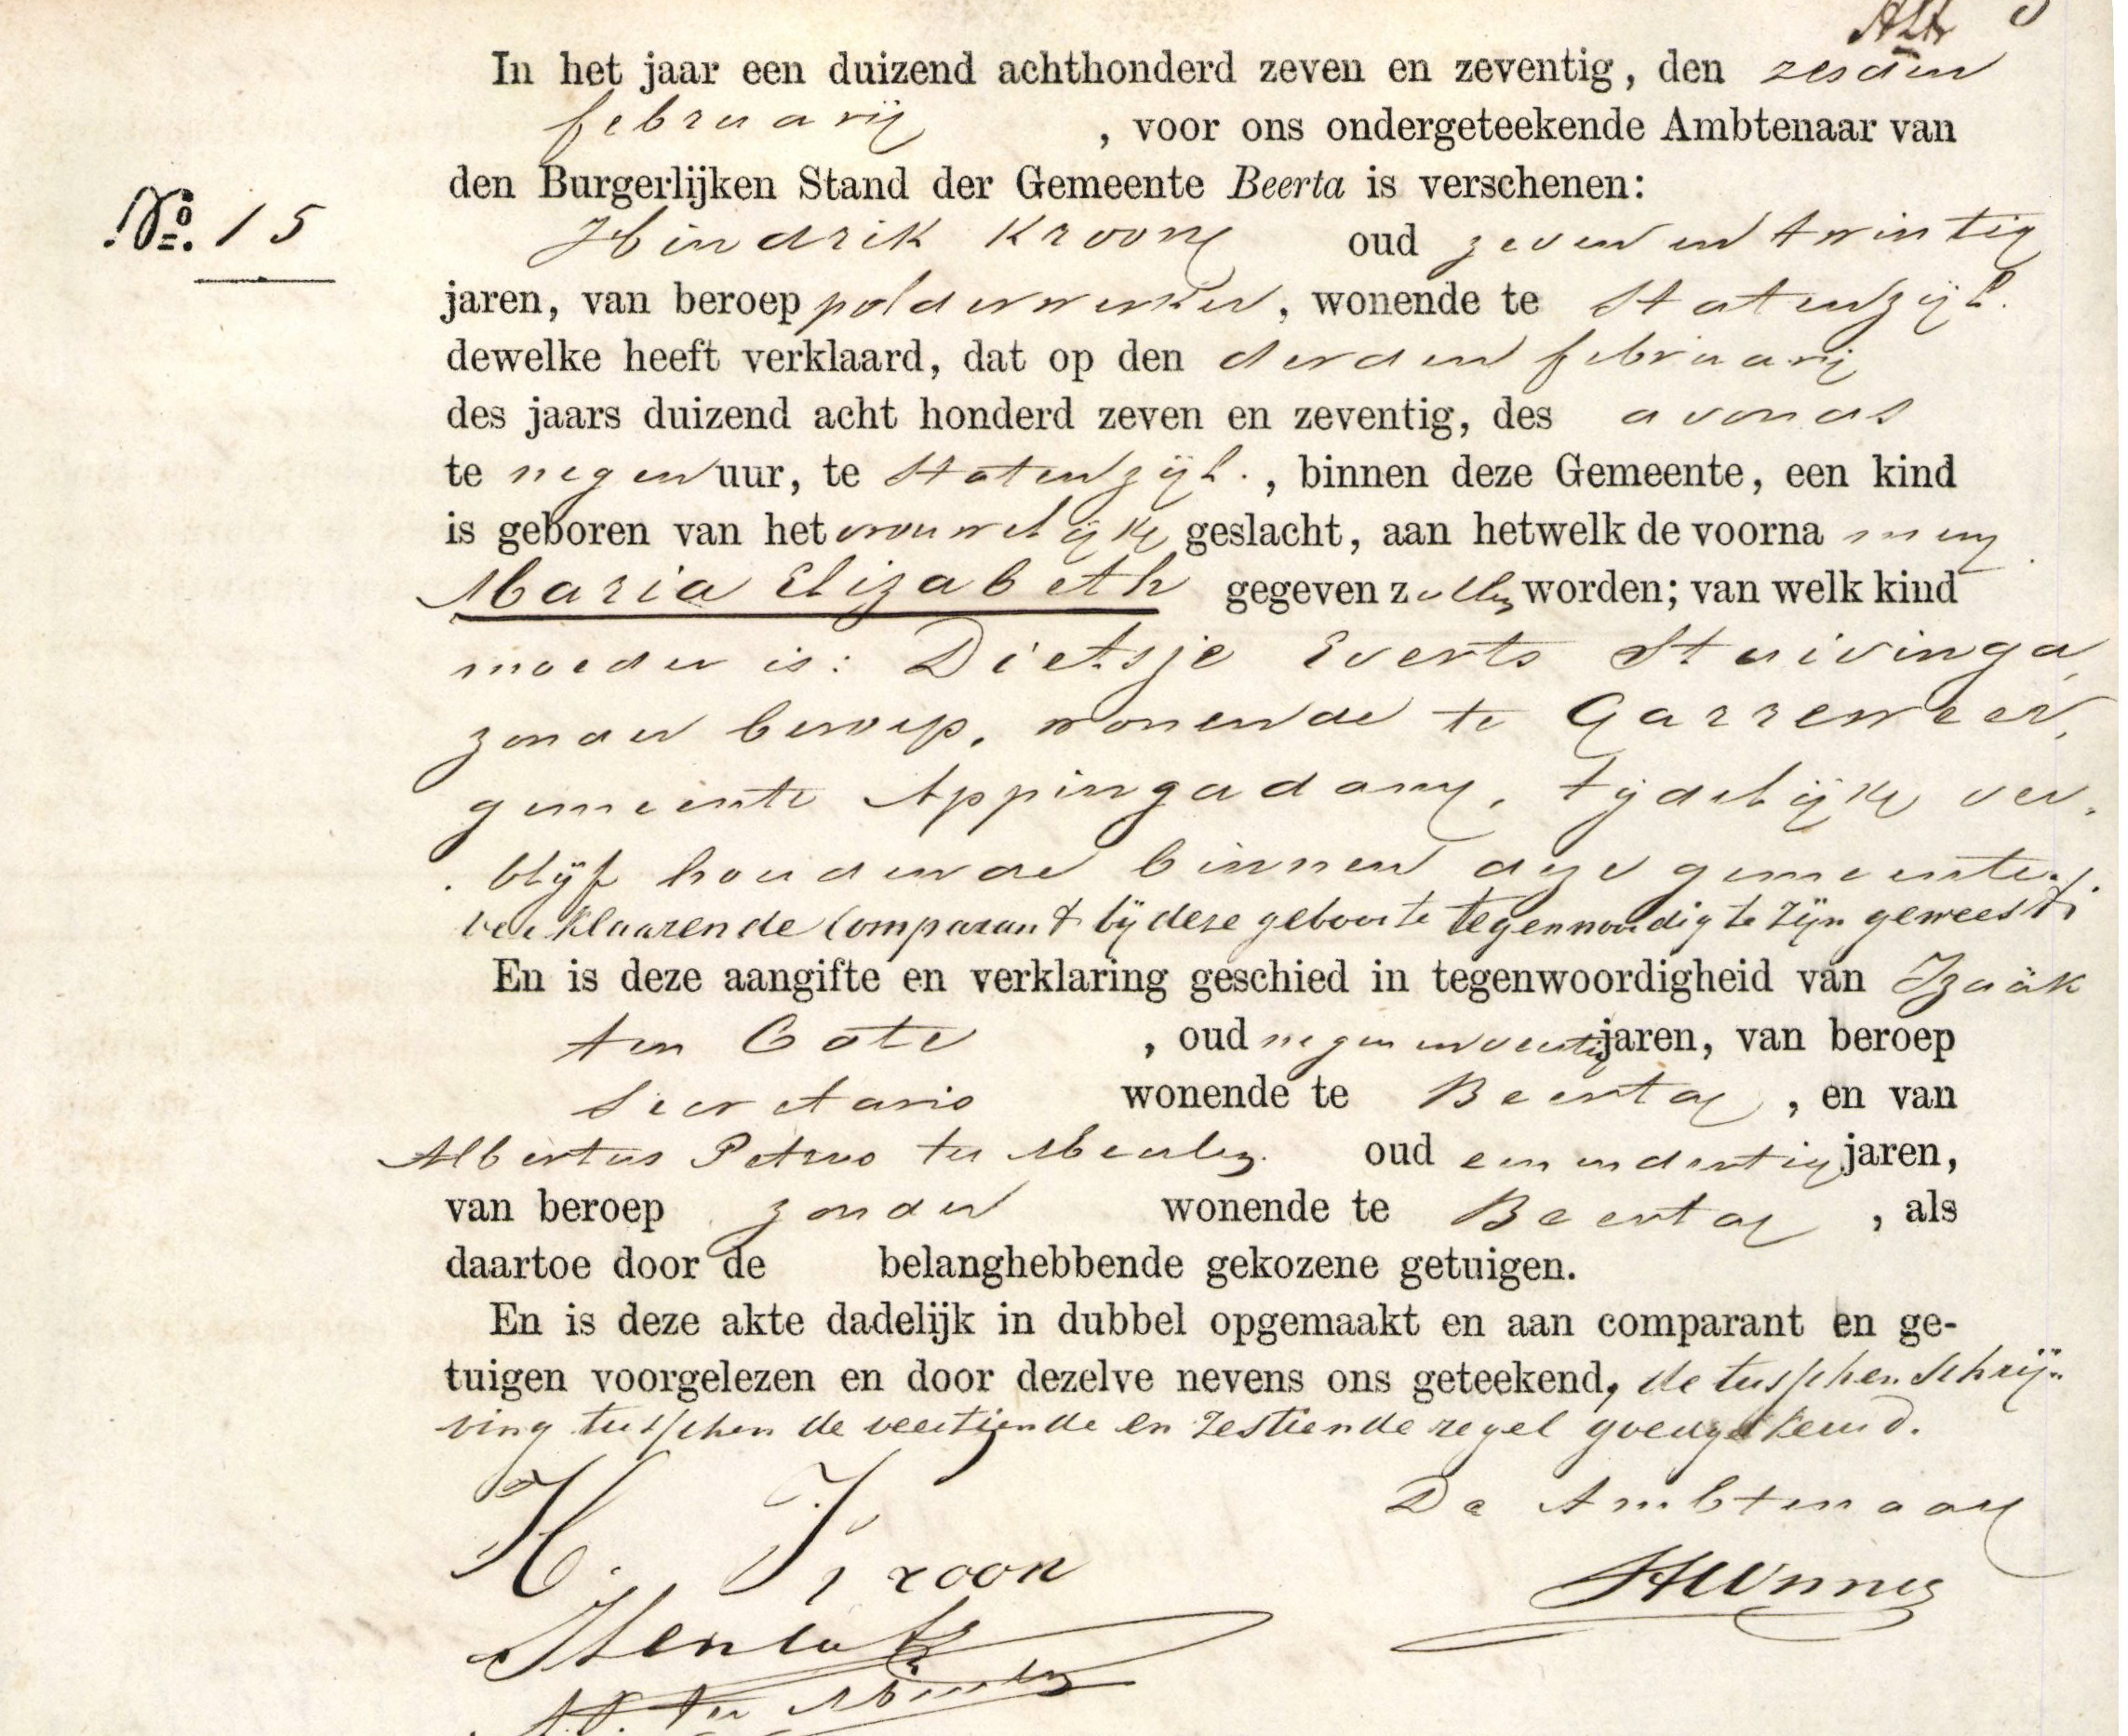 In het jaar een duizend achthonderd zeven en zeventig, den zesden
februarij , voor ons ondergeteekende Ambtenaar van
den Burgerlijken Stand der Gemeente Beerta is verschenen:
No. 15
Hindrik Kroon oud zeven en twintig
jaren, van beroep polderwerker, wonende te Statenzijl.
dewelke heeft verklaard, dat op den derden februarij
des jaars duizend acht honderd zeven en zeventig, des avonds
te negen uur, te Statenzijl. , binnen deze Gemeente, een kind
is geboren van het vrouwelijke geslacht, aan hetwelk de voorna men
Maria Elizabeth gegeven zullen worden; van welk kind
moeder is: Dietsje Everts Stuivinga,
zonder beroep, wonende te Garreweer,
gemeente Appingadam, tijdelijk ver-
blijf houdende binnen deze gemeente.
verklaarende Comparant bij deze geboorte tegenwoordig te zijn geweest.
En is deze aangifte en verklaring geschied in tegenwoordigheid van Izaäk
ten Cate , oud negen en veertig jaren, van beroep
Secretaris wonende te Beerta , en van
Albertus Petrus ter Meulen oud een en dertig jaren,
van beroep zonder wonende te Beerta , als
daartoe door de belanghebbende gekozene getuigen.
En is deze akte dadelijk in dubbel opgemaakt en aan comparant en ge-
tuigen voorgelezen en door dezelve nevens ons geteekend, de tusschenschrij-
ving tusschen de veertiende en zestiende regel goedgekeurd.
De Ambtenaar
H. Kroon
ItenCate
A.P. ter Meulen